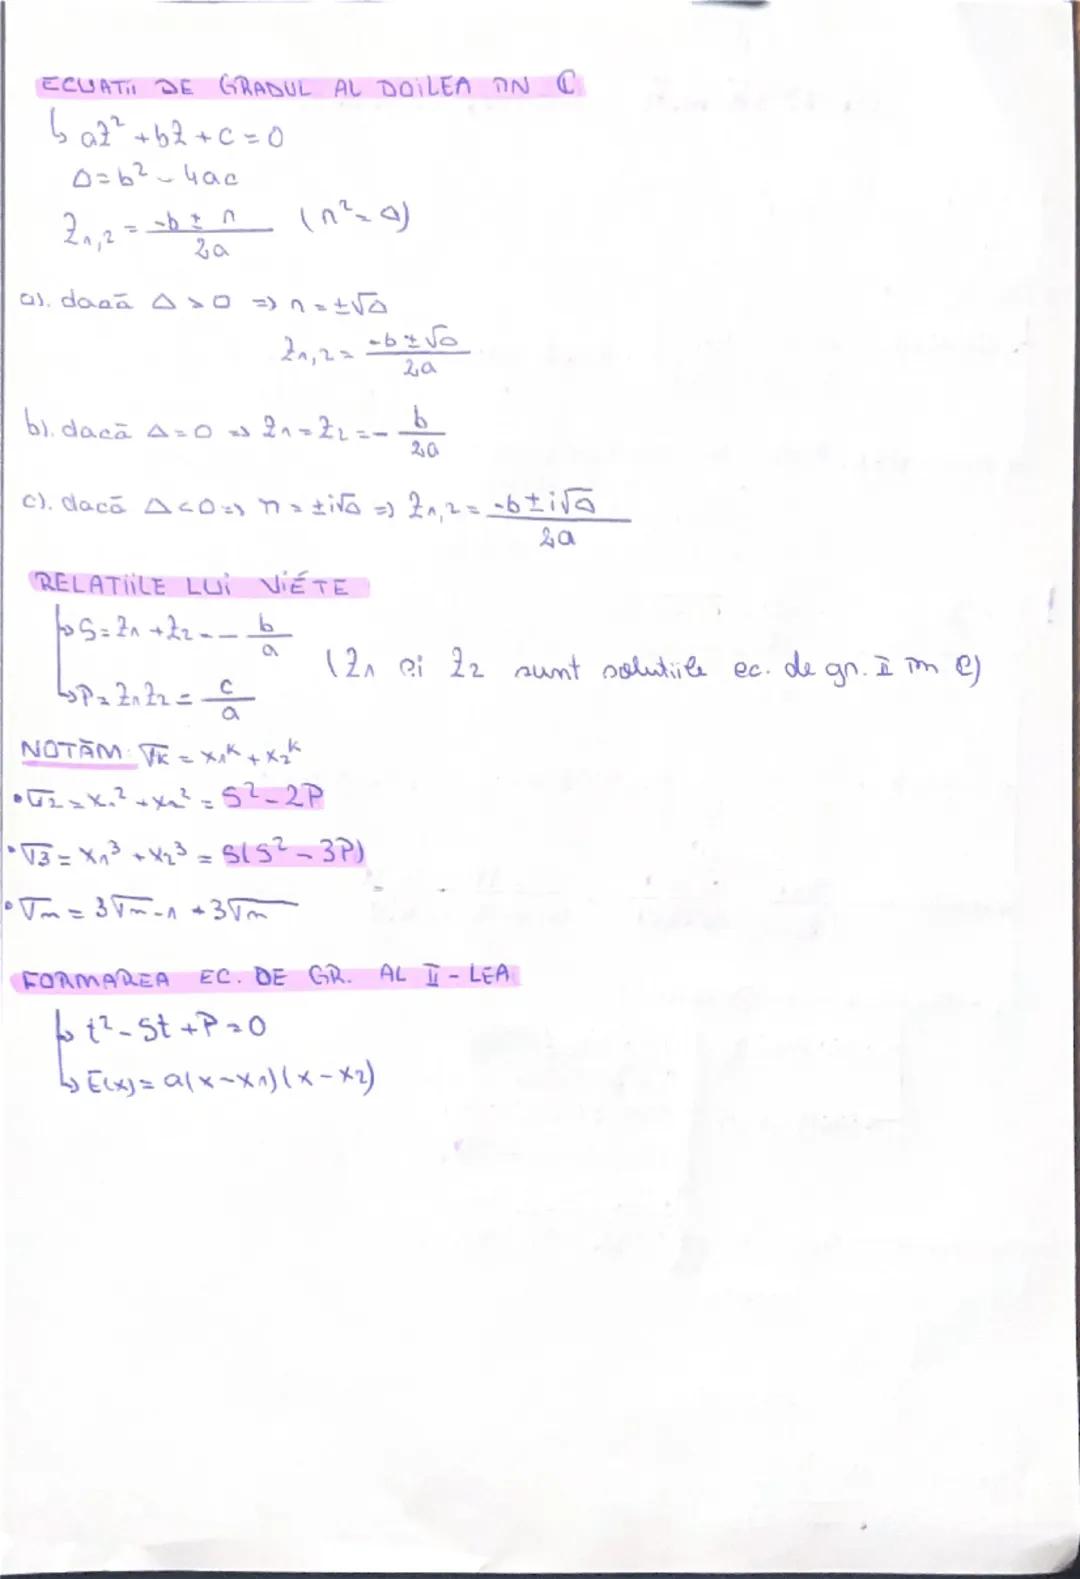 ECUATII DE GRADUL AL DOILEA ÎN ℂ
↳ az² + bz + c = 0
Δ = b² - 4ac
z₁,₂ = (-b ± r) / 2a (r² = Δ)
a). dacă Δ > 0 => r = ±√Δ
z₁,₂ = (-b ± √Δ) / 2a
b). dacă Δ = 0 => z₁ = z₂ = - b / 2a
c). dacă Δ < 0 => r = ±i√Δ => z₁,₂ = (-b ± i√Δ) / 2a
RELATIILE LUI VIÉTE
↳ S = z₁ + z₂ = - b / a
(z₁ și z₂ sunt solutiile ec. de gr. II în ℂ)
↳ P = z₁z₂ = c / a
NOTĂM: √k = x₁ᵏ + x₂ᵏ
• √2 = x₁² + x₂² = S² - 2P
• √3 = x₁³ + x₂³ = S(S² - 3P)
• √m = 3√m-1 + 3√m
FORMAREA EC. DE GR. AL II-LEA
↳ t² - St + P = 0
↳ E(x) = a(x - x₁)(x - x₂)